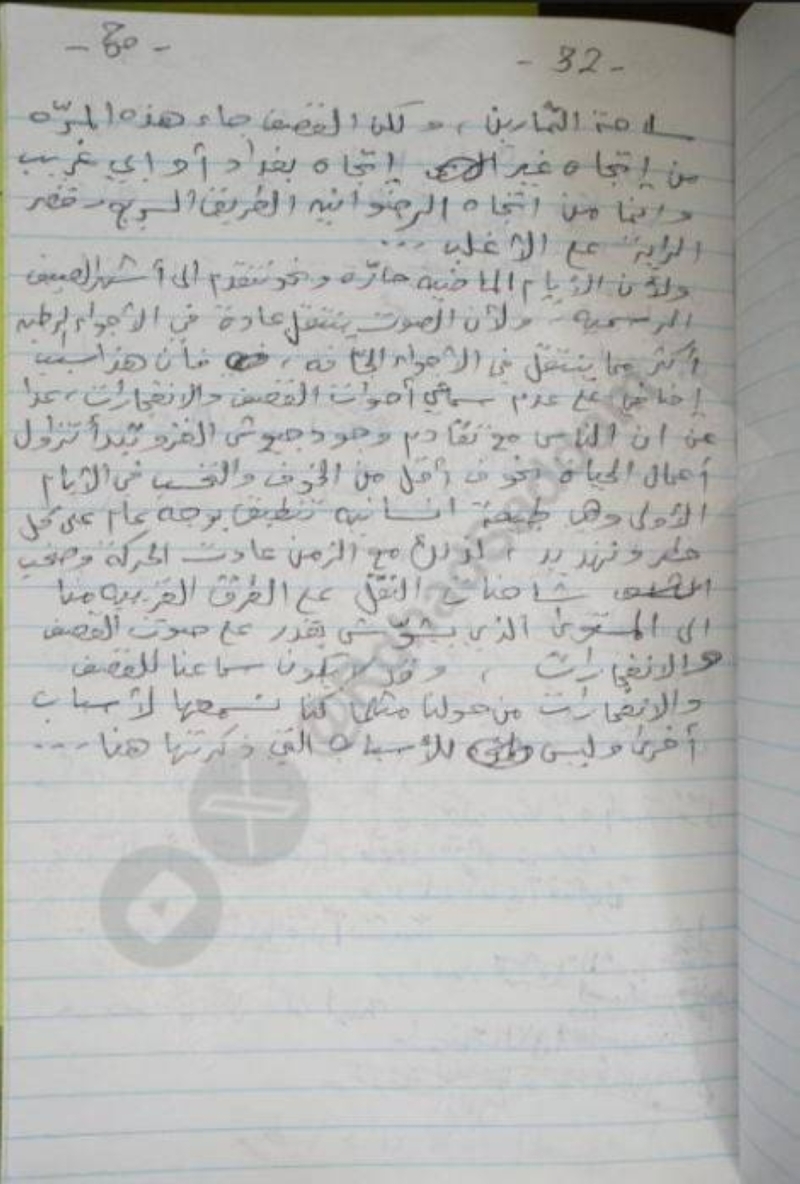 - 32 -
ساحة التمارين ، ولكن القصف جاء هذه المرّه
من إتجاه غير إتجاه بغداد أو ابي غريب
وانما من اتجاه الرضوانيه الطريق السريع - قصر
الرايه على الأغلب ...
ولأن الأيام الماضيه حارّه ونحو نتقدم الى أشهر الصيف
الرسميه - ولأن الصوت ينتقل عادة في الأجواء الرطبه
أكثر مما ينتقل في الأجواء الجافه ، فأن هذا سبب
إضافي على عدم سماعي أصوات القصف والانفجارات ، عدا
عن ان الناس مع تقادم وجود جيوش الغزو تبدأ تزاول
أعمال الحياه بخوف أقل من الخوف والتحسب في الأيام
الأولى وهي طبيعة انسانيه تنطبق بوجه عام على كل
خطر وتهديد ، لذلك مع الزمن عادت الحركة وصخب
شاحنات النقل على الطرق القريبه منا
الى المستوى الذي يشوّش بقدر على صوت القصف
والانفجارات ، وقد لا يكون سماعنا للقصف
والانفجارات من حولنا مثلما كنا نسمعها لأسباب
أخرى وليس للأسباب التي ذكرتها هنا ...
@RghadSaddam